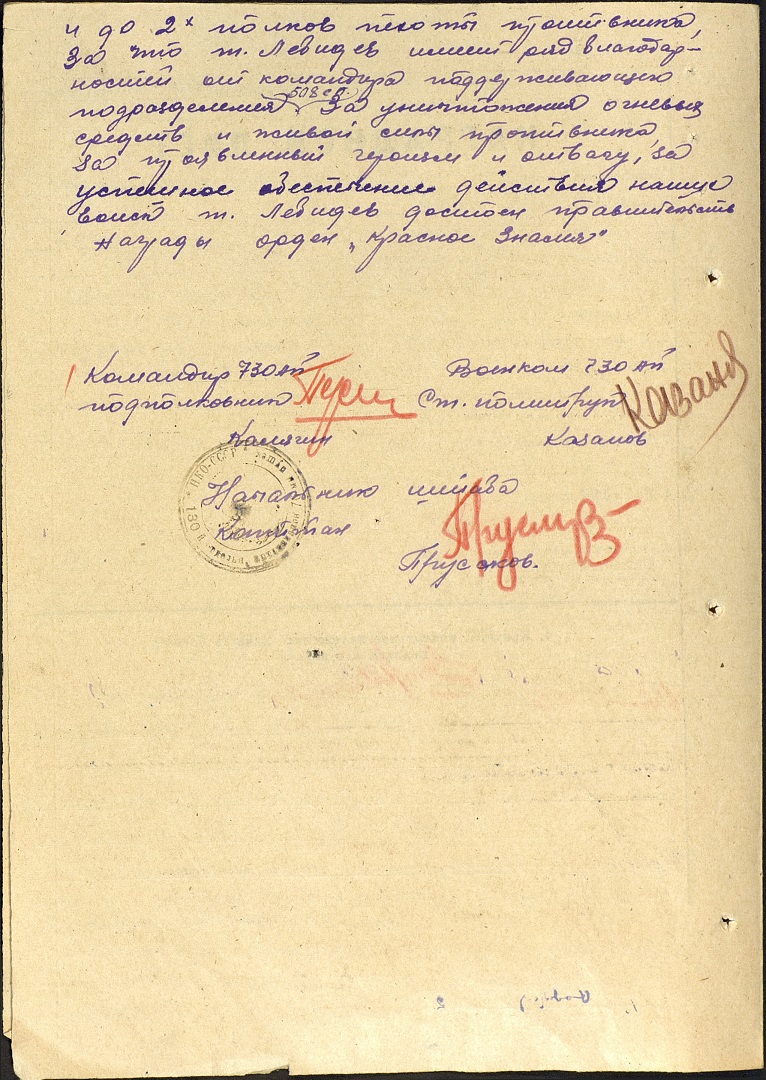 и до 2х полков пехоты противника,
За что т. Лебидев имеит ряд благодар-
ностей от командира поддерживающего
подразделения 508 сп. За уничтожения огневых
средств и живой силы противника,
За проявленный героизм и отвагу, за
успешное обеспечение действия наших
войск т. Лебидев достоен правительств
Награды орден „Красное Знамя"
Командир 730 АП
подполковник
Калягин
Военком 730 АП
Ст. политрук
Казаков
Начальник штаба
Капитан
Прусаков.
НКО-СССР